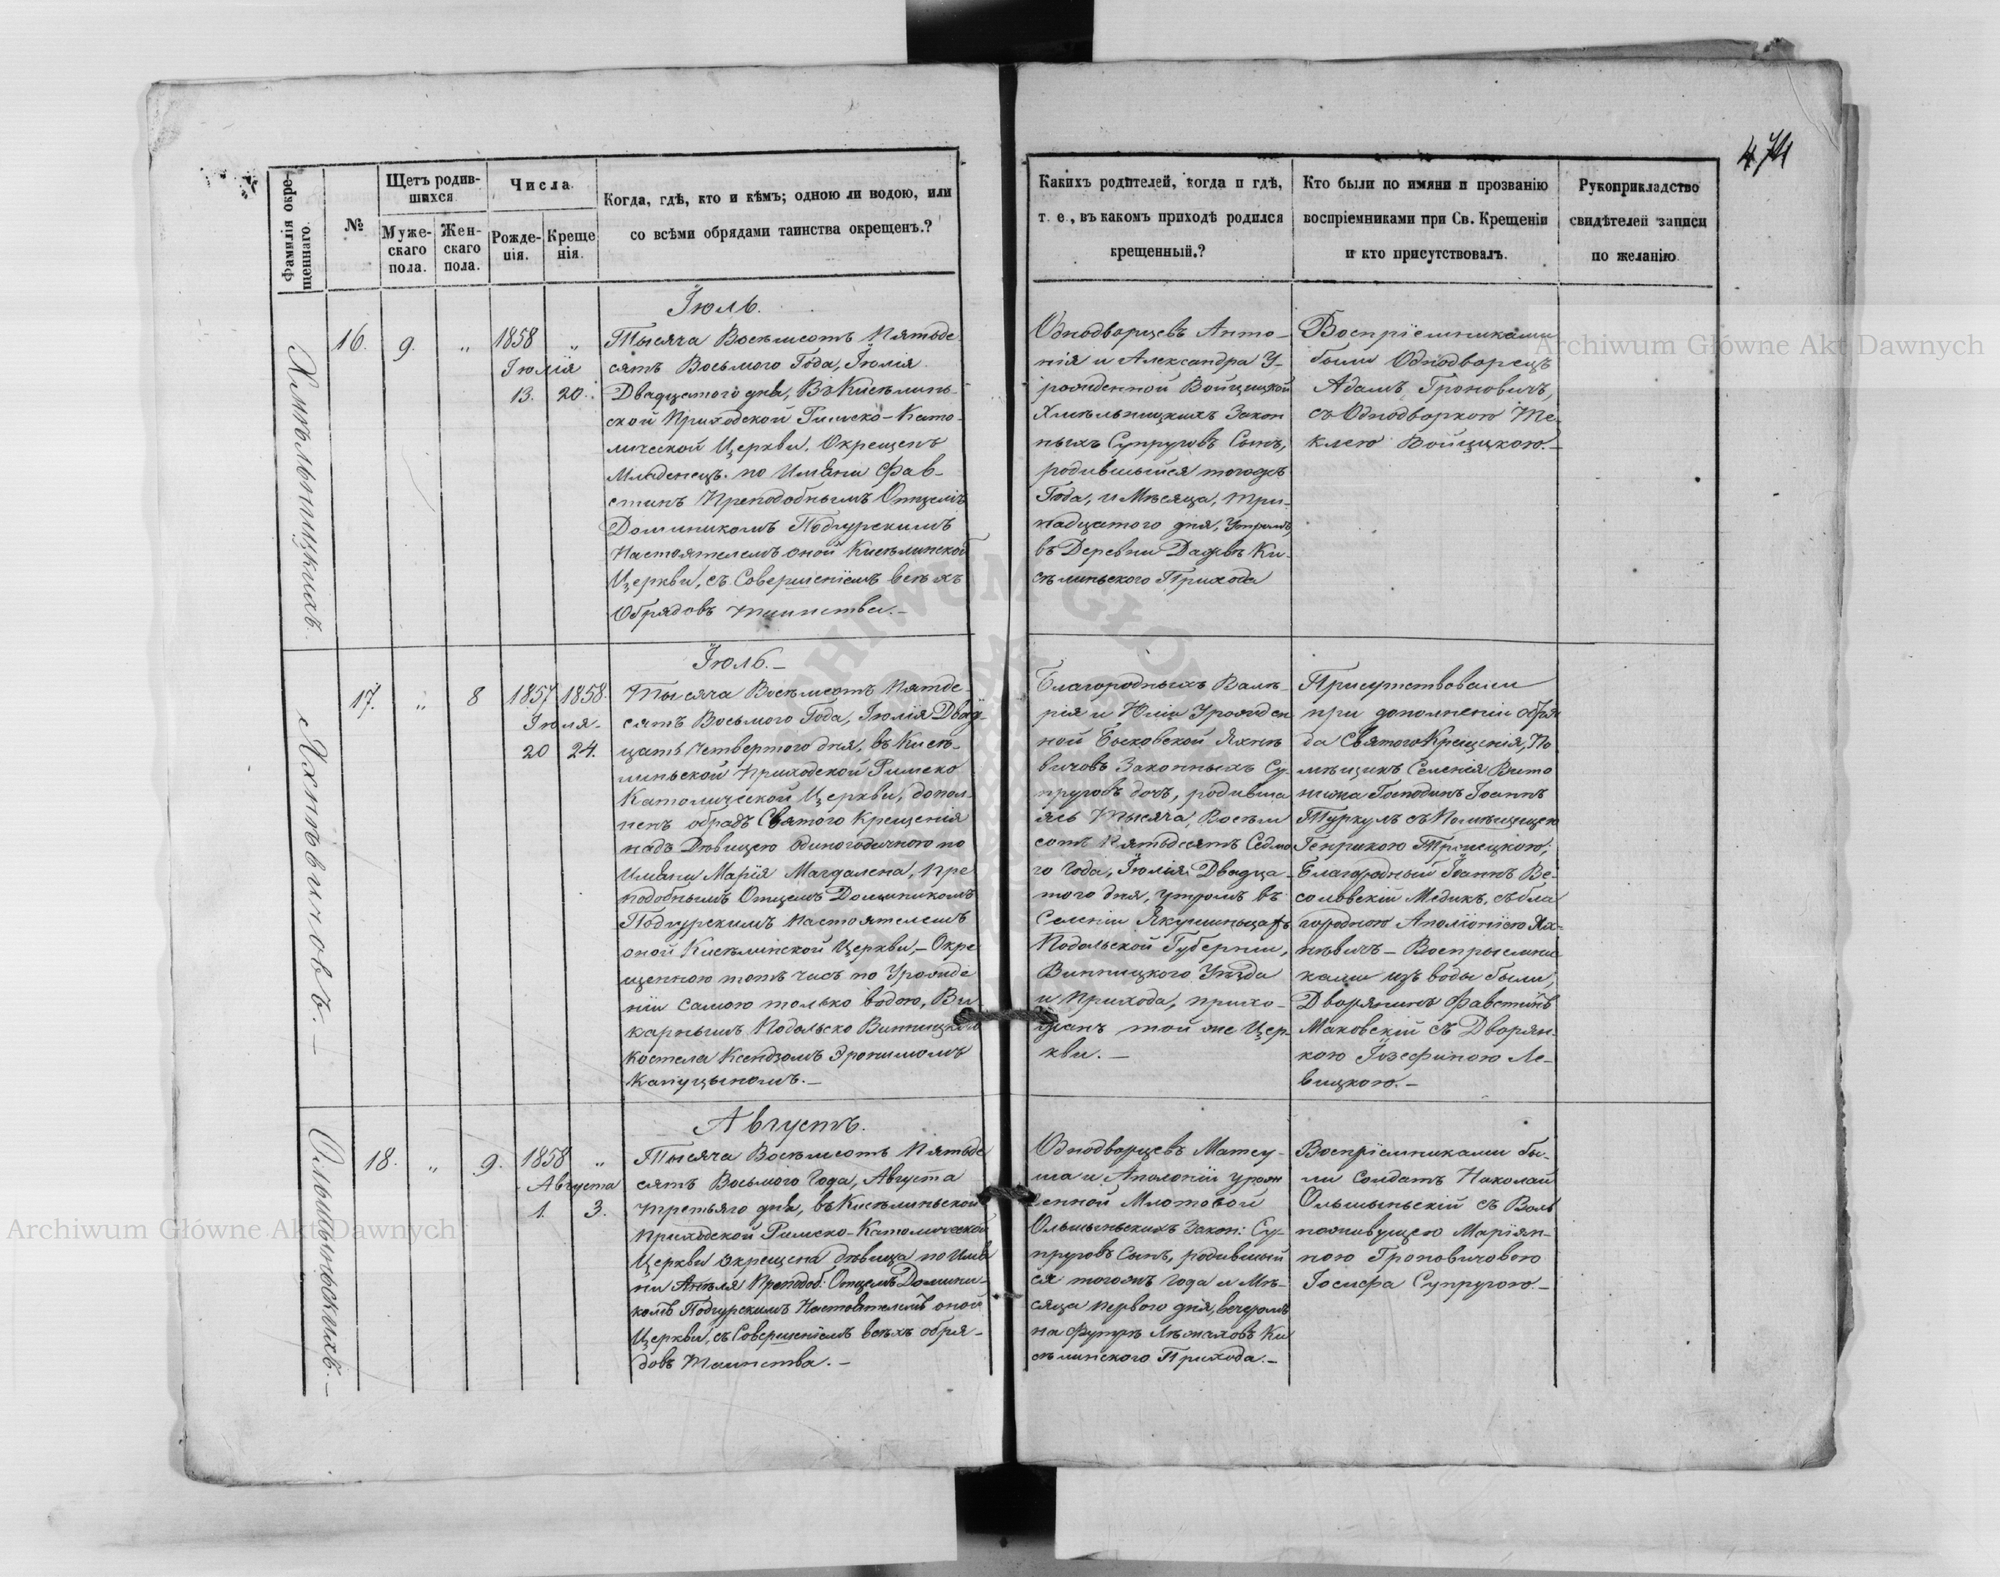 474
Фамилія окре-
щеннаго.
№
Щетъ родив-
шихся
Муже-
скаго
пола.
Жен-
скаго
пола.
Числа
Рожде-
нія.
Креще
нія.
Когда, гдѣ, кто и кѣмъ; одною ли водою, или
со всѣми обрядами таинства окрещенъ.?
Какихъ родителей, когда и гдѣ,
т. е., въ какомъ приходѣ родился
крещенный.?
Кто были по имяни и прозванію
воспріемниками при Св. Крещеніи
и кто присутствовалъ.
Рукоприкладство
свидѣтелей записи
по желанію
Хмѣльницкихъ.
16.
9.
"
1858
"
Іюлія
13.
20.
Іюль.
Тысяча Восемсотъ Пятьде
сятъ Восьмого Года, Іюлія
Двадцатого дня, Въ Киселинь-
ской Приходской Римско-Като-
лической Церкви, Окрещенъ
Младенецъ по Имяни Фав-
стинъ Преподобнымъ Отцемъ
Доминикомъ Подгурскимъ
Настоятелемъ оной Киселинской
Церкви, съ Совершеніемъ всѣхъ
Обрядовъ таинства.-
Однодворцевъ Анто-
нія и Александра У-
рожденной Войцицкой
Хмѣльницкихъ Закон
ныхъ Супруговъ Сынъ,
родившыйся тогожъ
Года, и Мѣсяца, три-
надцатого дня, Утромъ,
въ Деревни Дажвѣ Ки-
селиньского Прихода
Воспріемниками
были Однодворецъ
Адамъ Гроновичъ,
съ Однодворкою Те-
клею Войцицкою.-
Яхнѣвичовъ.-
17.
"
8
1857
1858.
Іюля-
20
24.
Іюль.-
Тысяча Восемсотъ Пятде-
сятъ Восьмого Года, Іюлія Двад-
цать четвертого дня, въ Кисе-
линьской Приходской Римско
Католической Церкви, допол-
ненъ обрадъ Святого Крещенія
надъ Дѣвицею одиногодичною по
Имяни Марія Магдалена, Пре
подобнымъ Отцемъ Доминикомъ
Подгурскимъ Настоятелемъ
оной Киселинской Церкви,- Окре
щенною тотъ часъ по Урожде
ніи самою только водою, Ви
карнымъ Подольско Винницкого
Костела Ксендзомъ Эронимомъ
Капуцыномъ.-
Благородныхъ Вале-
рія и Юліи Урожден
ной Босковской Яхнѣ
вичовъ Законныхъ Су-
пруговъ дочъ, родивша
ясь Тысяча, Восемь
сотъ Пятьдесятъ Седмо
го Года, Іюлія Двадца-
того дня, утромъ въ
Селеніи Якушинцахъ
Подольской Губерніи,
Винницкого Уѣзда
и Прихода, прихо-
жанъ той же Цер-
кви.-
Присутствовали
при дополненіи обря
да Святого Крещенія, По
мѣщикъ Селенія
Господинъ Іоаннъ
Туркулъ съ Помѣщицею
Генрикою Троецкою;
Благородный Іоаннъ Ве-
соловскій Медикъ, съ бла
городною Аполіоніею Ях-
нѣвичъ- Воспрыемни
ками изъ воды были,
Дворянинъ Фавстинъ
Маковскій съ Дворян-
кою Іозефиною Ле-
вицкою.-
Ольшыньскихъ.-
18.
"
9.
1858
"
Августа
1.
3.
Августъ.
Тысяча Восемсотъ Пятьде
сятъ Восьмого Года, Августа
третьяго дня, въ Киселиньской
Приходской Римско-Католической
Церкви окрещена дѣвица по Имя
ни Анѣля Преподоб: Отцемъ Домини-
комъ Подгурскимъ Настоятелемъ оной
Церкви, съ Совершеніемъ всѣхъ обря-
довъ Таинства.-
Однодворцевъ Матеу-
ша и Аполоніи урож
енной Млотовой
Ольшыньскихъ Закон: Су-
пруговъ Сынъ, родившый
ся тогожъ Года и Мѣ-
сяца первого дня, вечеромъ
на Футурѣ Лежаховъ Ки
селинского Прихода.-
Воспріемниками бы-
ли Солдатъ Николай
Ольшыньскій съ Воль
поживущею Маріян-
ною Гроновичовою
Іосифа Супругою.-
Archiwum Główne Akt Dawnych
Archiwum Główne Akt Dawnych